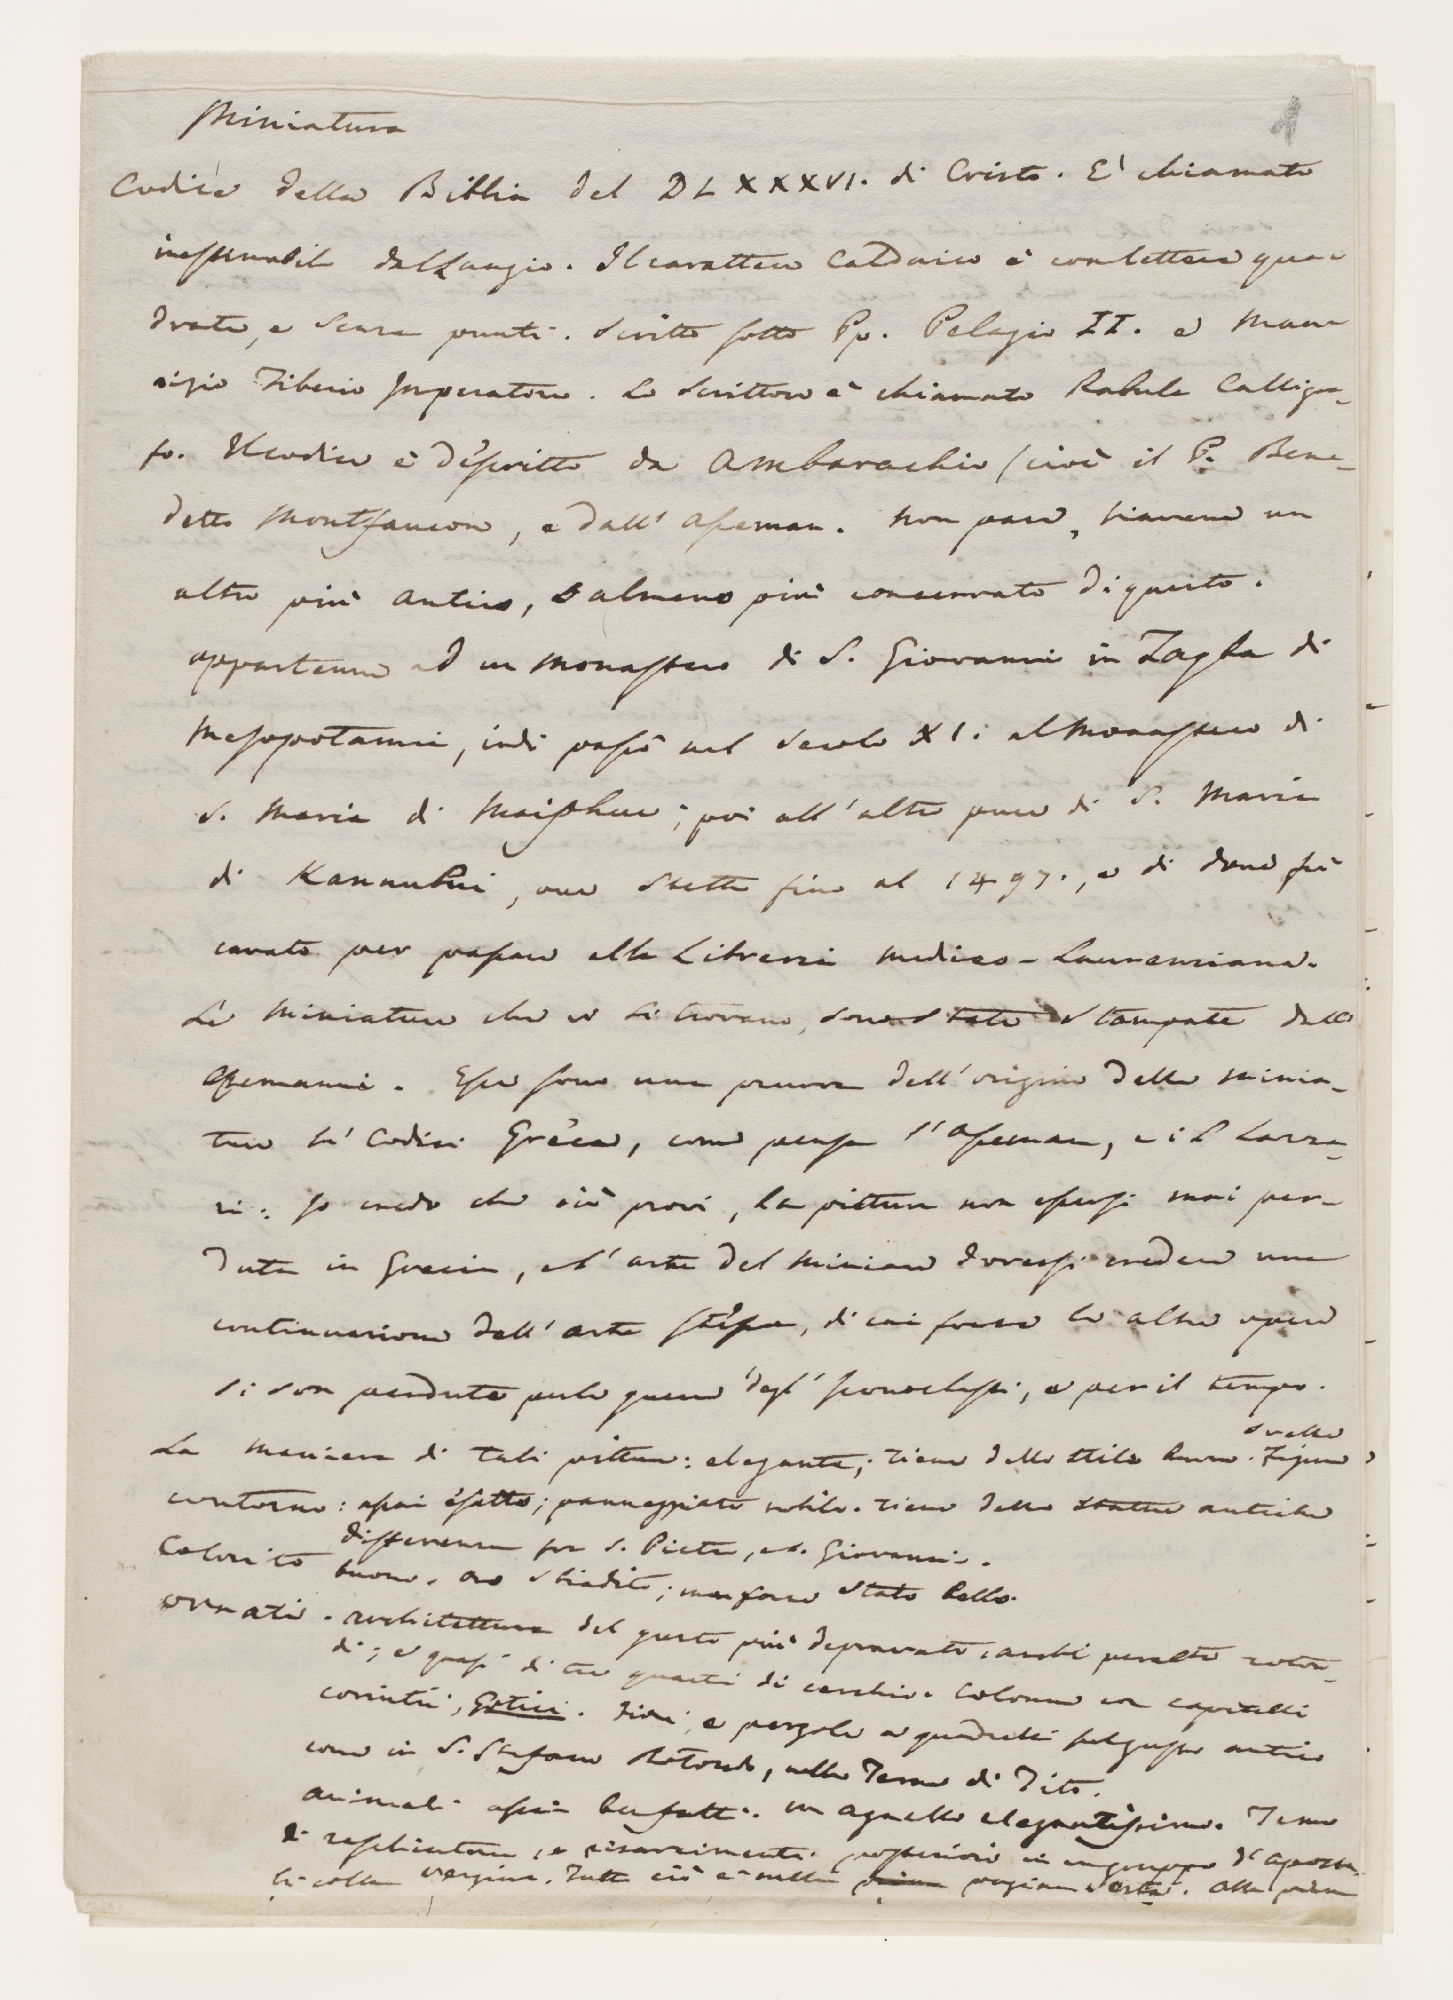 Miniatura
1
Codice della Bibbia del DLXXXVI. di Cristo. E' chiamato
inestimabile dal Langio. Il carattere Caldaico è con lettere qua-
drate, e senza punti. Scritto sotto Pp. Pelagio II. e Mau-
rizio Tiberio Imperatore. Lo Scrittore è chiamato Rabula Calligra-
fo. Il codice è descritto da Ambarachio (cioè il P. Bene-
detto Montfaucon, e dall' Asseman. Non pare, siavene un
altro più antico, o almeno più conservato di questo.
appartenne ad un monastero di S. Giovanni in Zagba di
Mesopotamia, indi passò nel Secolo XI. al Monastero di
S. Maria di Maiphuc; poi all'altro pure di S. Maria
di Kannubin, ove stette fino al 1497., e di dove fu
cavato per passare alla Libreria Mediceo-Laurenziana.
Le Miniature che vi si trovano, sono state stampate dall'
Assemanni. Esse sono una pruova dell'origine delle minia-
ture su' Codici Greca, come pensa l'Asseman, e il P. Lazza-
ri: Io credo che ciò provi, la pittura non essersi mai per-
duta in Grecia, e l'arte del miniare doversi credere una
continuazione dell'arte stessa, di cui forse le altre opere
si son perdute per la guerra degl' Iconoclasti, e per il tempo.
La maniera di tali pitture: elegante; tiene dello stile buono. Figure
svelte
contorno: assai esatto; panneggiato nobile. tiene delle statue antiche
differenza fra S. Pietro, e S. Giovanni.
Colorito buono. oro sbiadito; ma forse stato bello.
ornati. Architettura del gusto più depravato, archi peralto roton-
di; e quasi di tre quarti di cerchio. Colonne con capitelli
corintii, Gotici. Fiori, e pergole a quadrelli sul gusto antico
come in S. Stefano Rotondo, nelle Terme di Tito.
Animali assai ben fatti. un agnello elegantissimo. Teme
di restauratore, e risarcimenti posteriori in un gruppo d'aposto-
li colla Vergine. Tutto ciò è nella prima pagina sesta. Alla prima